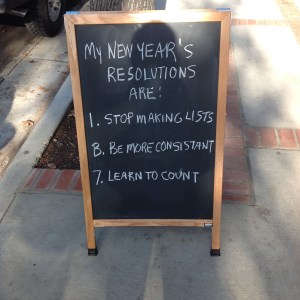 My NEW YEAR'S
RESOLUTIONS
ARE:
1. STOP MAKING LISTS
B. BE MORE CONSISTANT
7. LEARN TO COUNT